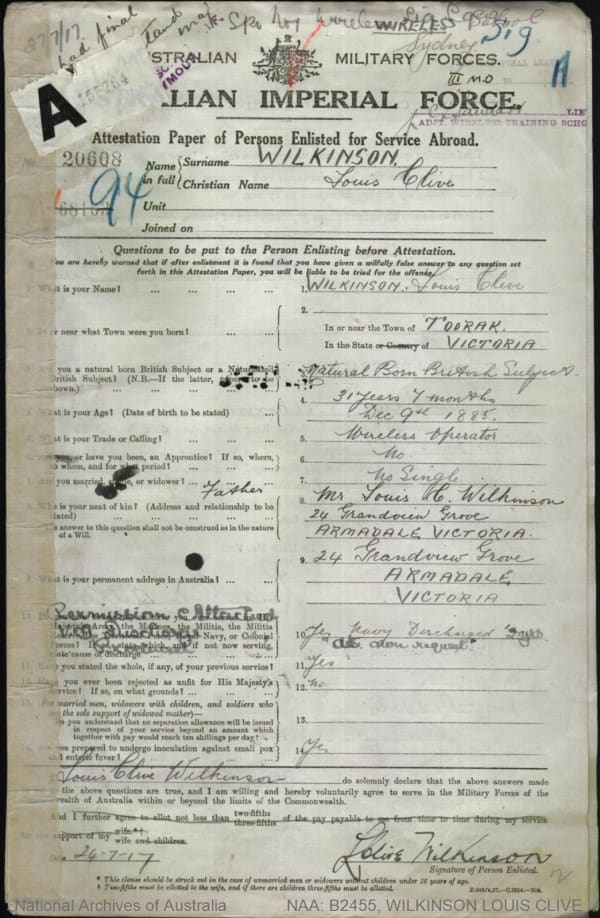 27/7/17
had final
land
map
Spe
Wireless
WIRELESS
Sig
School
Sydney
Sig
A
A
AUSTRALIAN MILITARY FORCES.
III MD
ALIAN IMPERIAL FORCE.
LIE
ADJT. WIRELESS TRAINING SCHO
Attestation Paper of Persons Enlisted for Service Abroad.
No. 20608
Name in full
Surname WILKINSON.
Christian Name Louis Clive
94
Unit
Joined on
Questions to be put to the Person Enlisting before Attestation.
You are hereby warned that if after enlistment it is found that you have given a wilfully false answer to any question set
forth in this Attestation Paper, you will be liable to be tried for the offence.
1. What is your Name? ... 1. WILKINSON. Louis Clive
2. In or near what Town were you born? ... 2.
In or near the Town of TOORAK.
In the State or Country of VICTORIA
3. Are you a natural born British Subject or a Naturalised
British Subject? (N.B.—If the latter, papers to be
shown.) 3. Natural Born British Subject.
4. What is your Age? (Date of birth to be stated) ... 4. 31 years 7 months
Dec 9th 1885.
5. What is your Trade or Calling? ... 5. Wireless Operator
6. Are you, or have you been, an Apprentice? If so, where,
to whom, and for what period? 6. No.
7. Are you married, single, or widower? ... 7. No Single
Father
8. Who is your next of kin? (Address and relationship to be
stated) 8. Mr Louis C. Wilkinson
24 Grandview Grove
ARMADALE, VICTORIA.
The answer to this question shall not be construed as in the nature
of a Will.
9. What is your permanent address in Australia? ... 9. 24 Grandview Grove
ARMADALE
VICTORIA
Permission
10. Yes Navy Discharged
own request"
11. Have you stated the whole, if any, of your previous service? 11. Yes
12. Have you ever been rejected as unfit for His Majesty's
Service? If so, on what grounds? 12. No
13. For married men, widowers with children, and soldiers who
are the sole support of widowed mother)—
Do you understand that no separation allowance will be issued
in respect of your service beyond an amount which
together with pay would reach ten shillings per day? 13.
14. Are you prepared to undergo inoculation against small pox
and enteric fever? 14. Yes
I, Louis Clive Wilkinson do solemnly declare that the above answers made
the above questions are true, and I am willing and hereby voluntarily agree to serve in the Military Forces of the
Commonwealth of Australia within or beyond the limits of the Commonwealth.
And I further agree to allot not less than two-fifths three-fifths of the pay payable to me from time to time during my service
for the support of my wife.*† wife and children.
Date 24-7-17
Clive Wilkinson
Signature of Person Enlisted.
* This clause should be struck out in the case of unmarried men or widowers without children under 16 years of age.
† Two-fifths must be allotted to the wife, and if there are children three-fifths must be allotted.
National Archives of Australia
NAA: B2455, WILKINSON LOUIS CLIVE